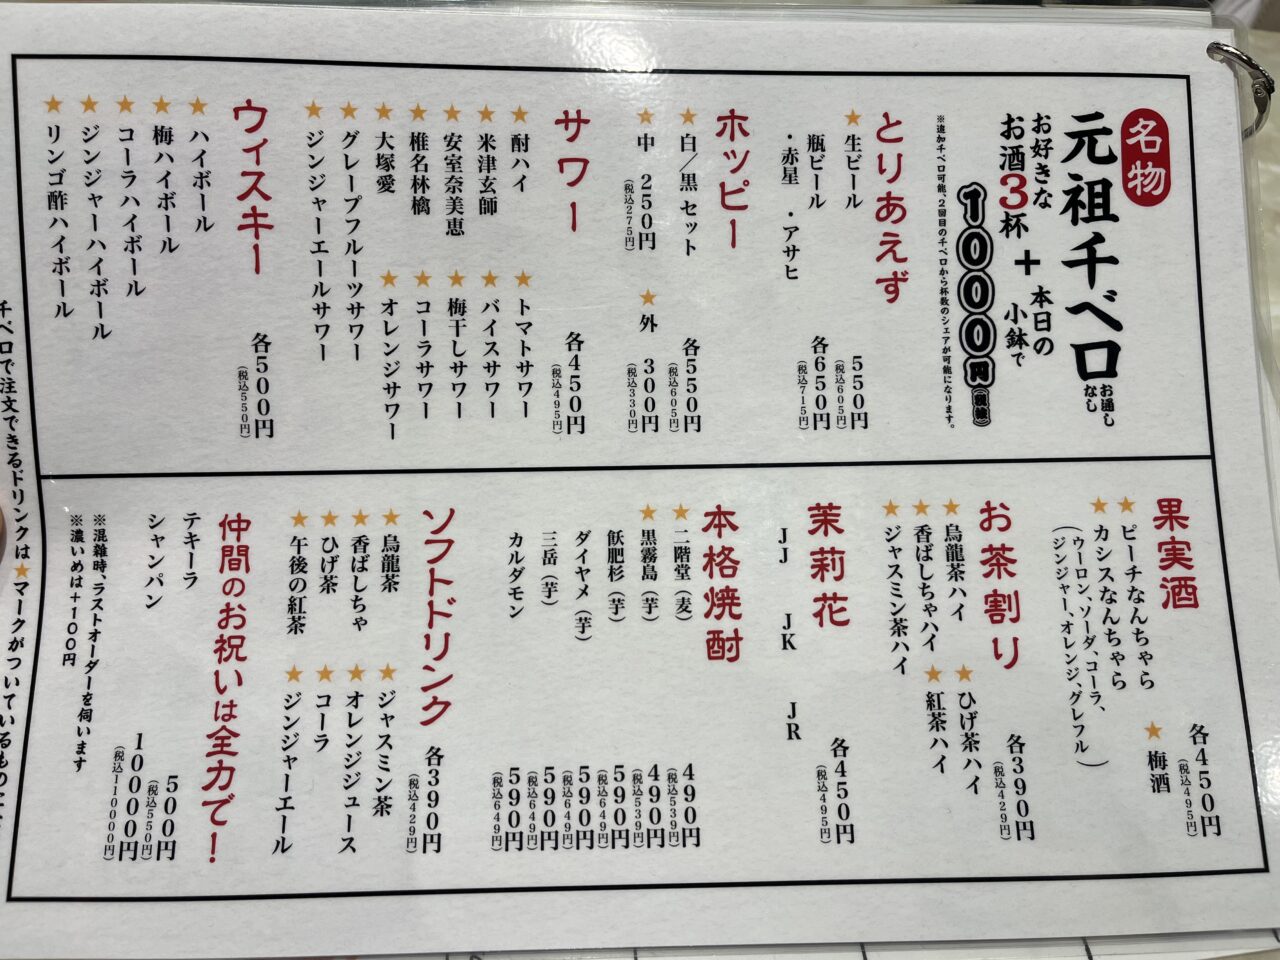 名物
元祖千ベロ
お通し
なし
お好きな
お酒3杯
+
本日の
小鉢で
1000円(税抜)
※追加千ベロ可能、2回目の千ベロから杯数のシェアが可能になります。
とりあえず
★生ビール 550円
(税込605円)
瓶ビール 各650円
(税込715円)
・赤星 ・アサヒ
ホッピー
★白/黒 セット 各550円
(税込605円)
★中 250円
(税込275円)
★外 300円
(税込330円)
サワー 各450円
(税込495円)
★酎ハイ ★トマトサワー
★米津玄師 ★バイスサワー
★安室奈美恵 ★梅干しサワー
★椎名林檎 ★コーラサワー
★大塚愛 ★オレンジサワー
★グレープフルーツサワー
★ジンジャーエールサワー
ウィスキー 各500円
(税込550円)
★ハイボール
★梅ハイボール
★コーラハイボール
★ジンジャーハイボール
★リンゴ酢ハイボール
果実酒 各450円
(税込495円)
★ピーチなんちゃら ★梅酒
★カシスなんちゃら
(ウーロン、ソーダ、コーラ、
ジンジャー、オレンジ、グレフル)
お茶割り 各390円
(税込429円)
★烏龍茶ハイ ★ひげ茶ハイ
★香ばしちゃハイ ★紅茶ハイ
★ジャスミン茶ハイ
茉莉花 各450円
(税込495円)
JJ JK JR
本格焼酎
★二階堂(麦) 490円
(税込539円)
★黒霧島(芋) 490円
(税込539円)
飫肥杉(芋) 590円
(税込649円)
ダイヤメ(芋) 590円
(税込649円)
三岳(芋) 590円
(税込649円)
カルダモン 590円
(税込649円)
ソフトドリンク 各390円
(税込429円)
★烏龍茶 ★ジャスミン茶
★香ばしちゃ ★オレンジジュース
★ひげ茶 ★コーラ
★午後の紅茶 ★ジンジャーエール
仲間のお祝いは全力で!
テキーラ 500円
(税込550円)
シャンパン 10000円
(税込11000円)
※混雑時、ラストオーダーを伺います
※濃いめは+100円
千ベロで注文できるドリンクは★マークがついているもの